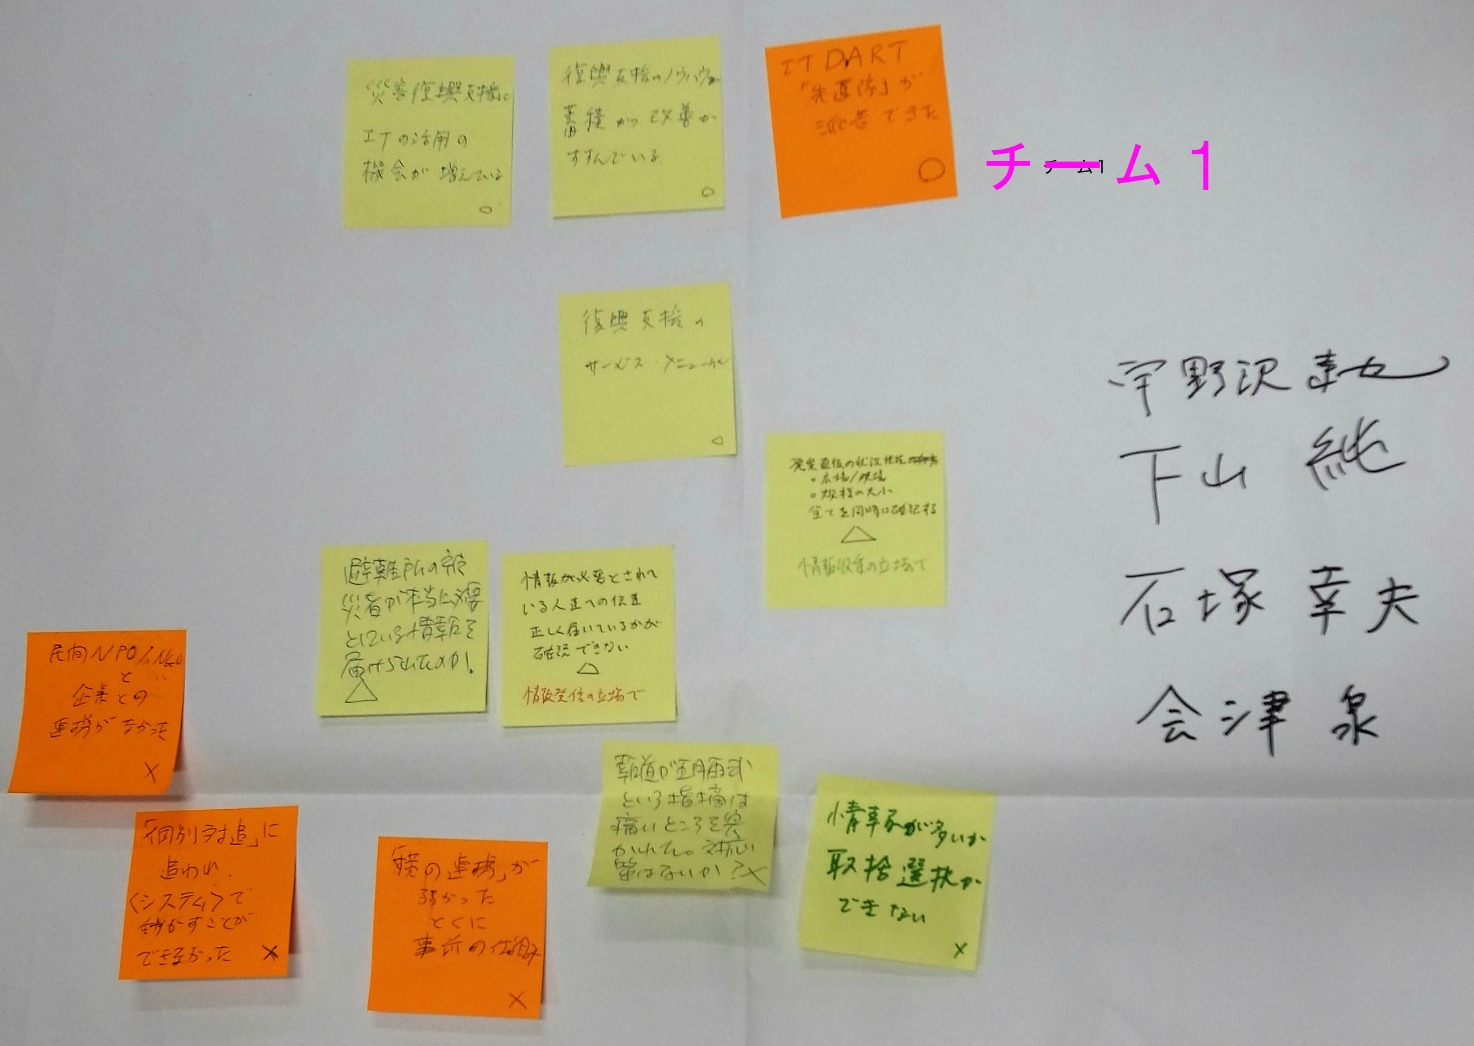 災害復興支援に
ITの活用の
機会が増えている
○
復興支援のノウハウの
蓄積かつ改善が
すすんでいる
○
IT DART
「先遣隊」が
派遣できた
○
チーム1
チーム1
復興支援の
サービス・メニュー化
○
発災直後の状況
・広域/狭域
・規模の大小
全てを同時に確認する
△
情報収集の立場で
宇野沢
下山 純
石塚 幸夫
会津 泉
避難所の被
災者が本当に必要
としている情報を
届けられたのか!
△
情報が必要とされて
いる人達への伝達
正しく届いているかが
確認できない
△
情報発信の立場で
民間NPO/NGO
と
企業との
連携がなかった
×
「個別対応」に
追われ、
〈システム〉で
動かすことが
できなかった ×
「横の連携」が
弱かった
とくに
事前の仕組み
×
報道が五月雨式
という指摘は
痛いところを突
かれた。対応
策はないか?×
情報が多いが
取捨選択が
できない
×